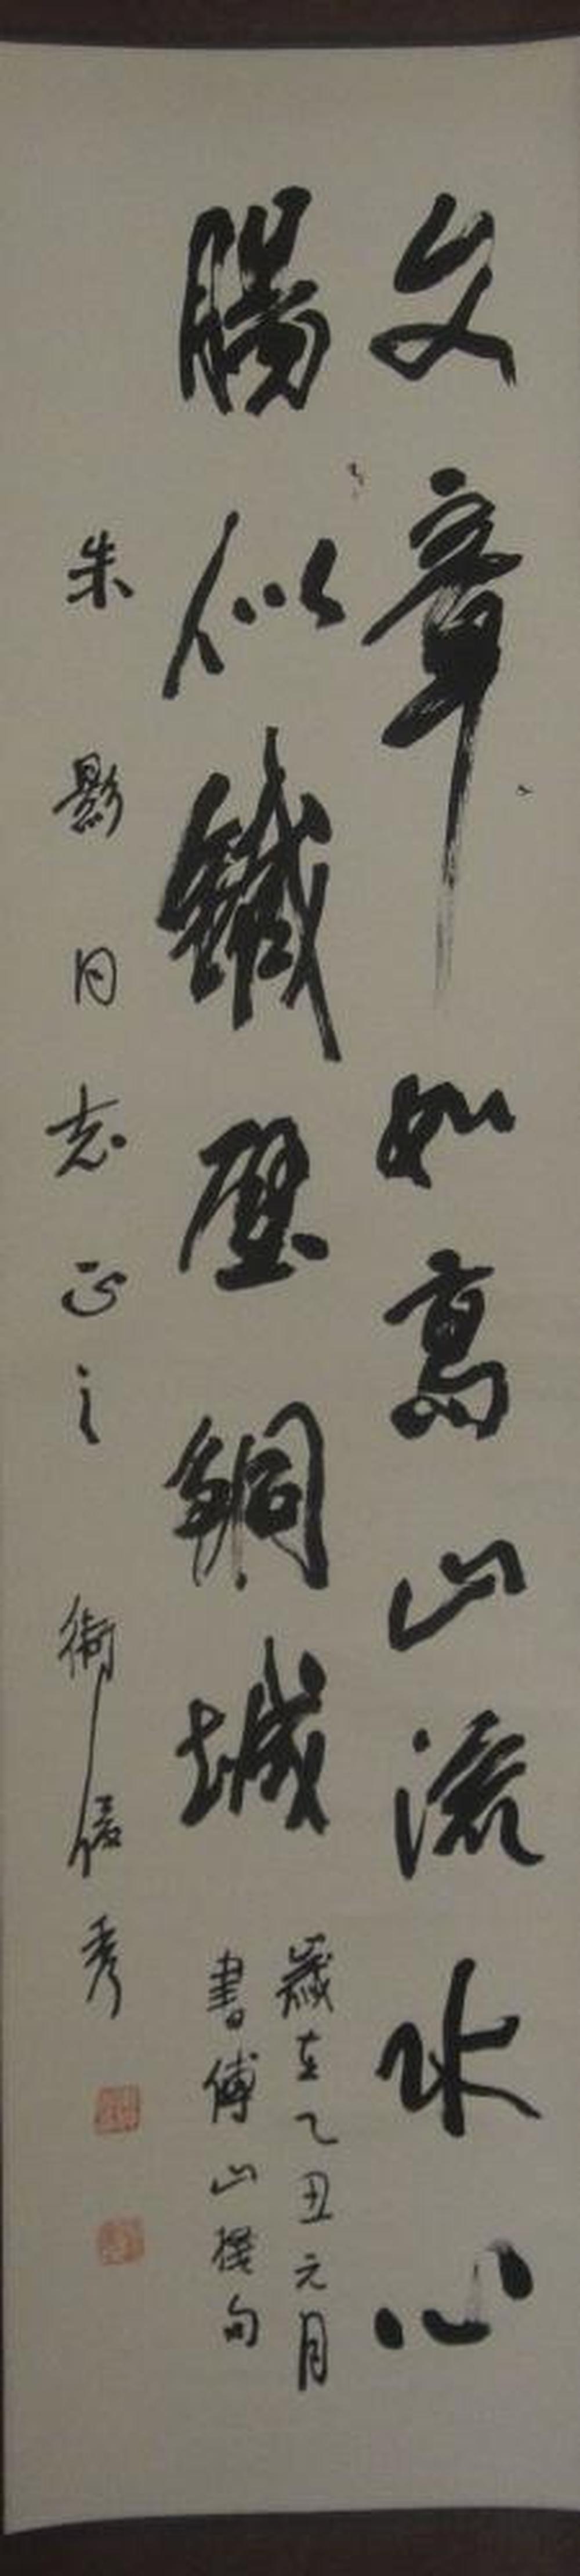 文章如高山流水心
腸似鐵壁銅城
歲在乙丑元月
書傅山撰句
朱影同志正之
衛俊秀